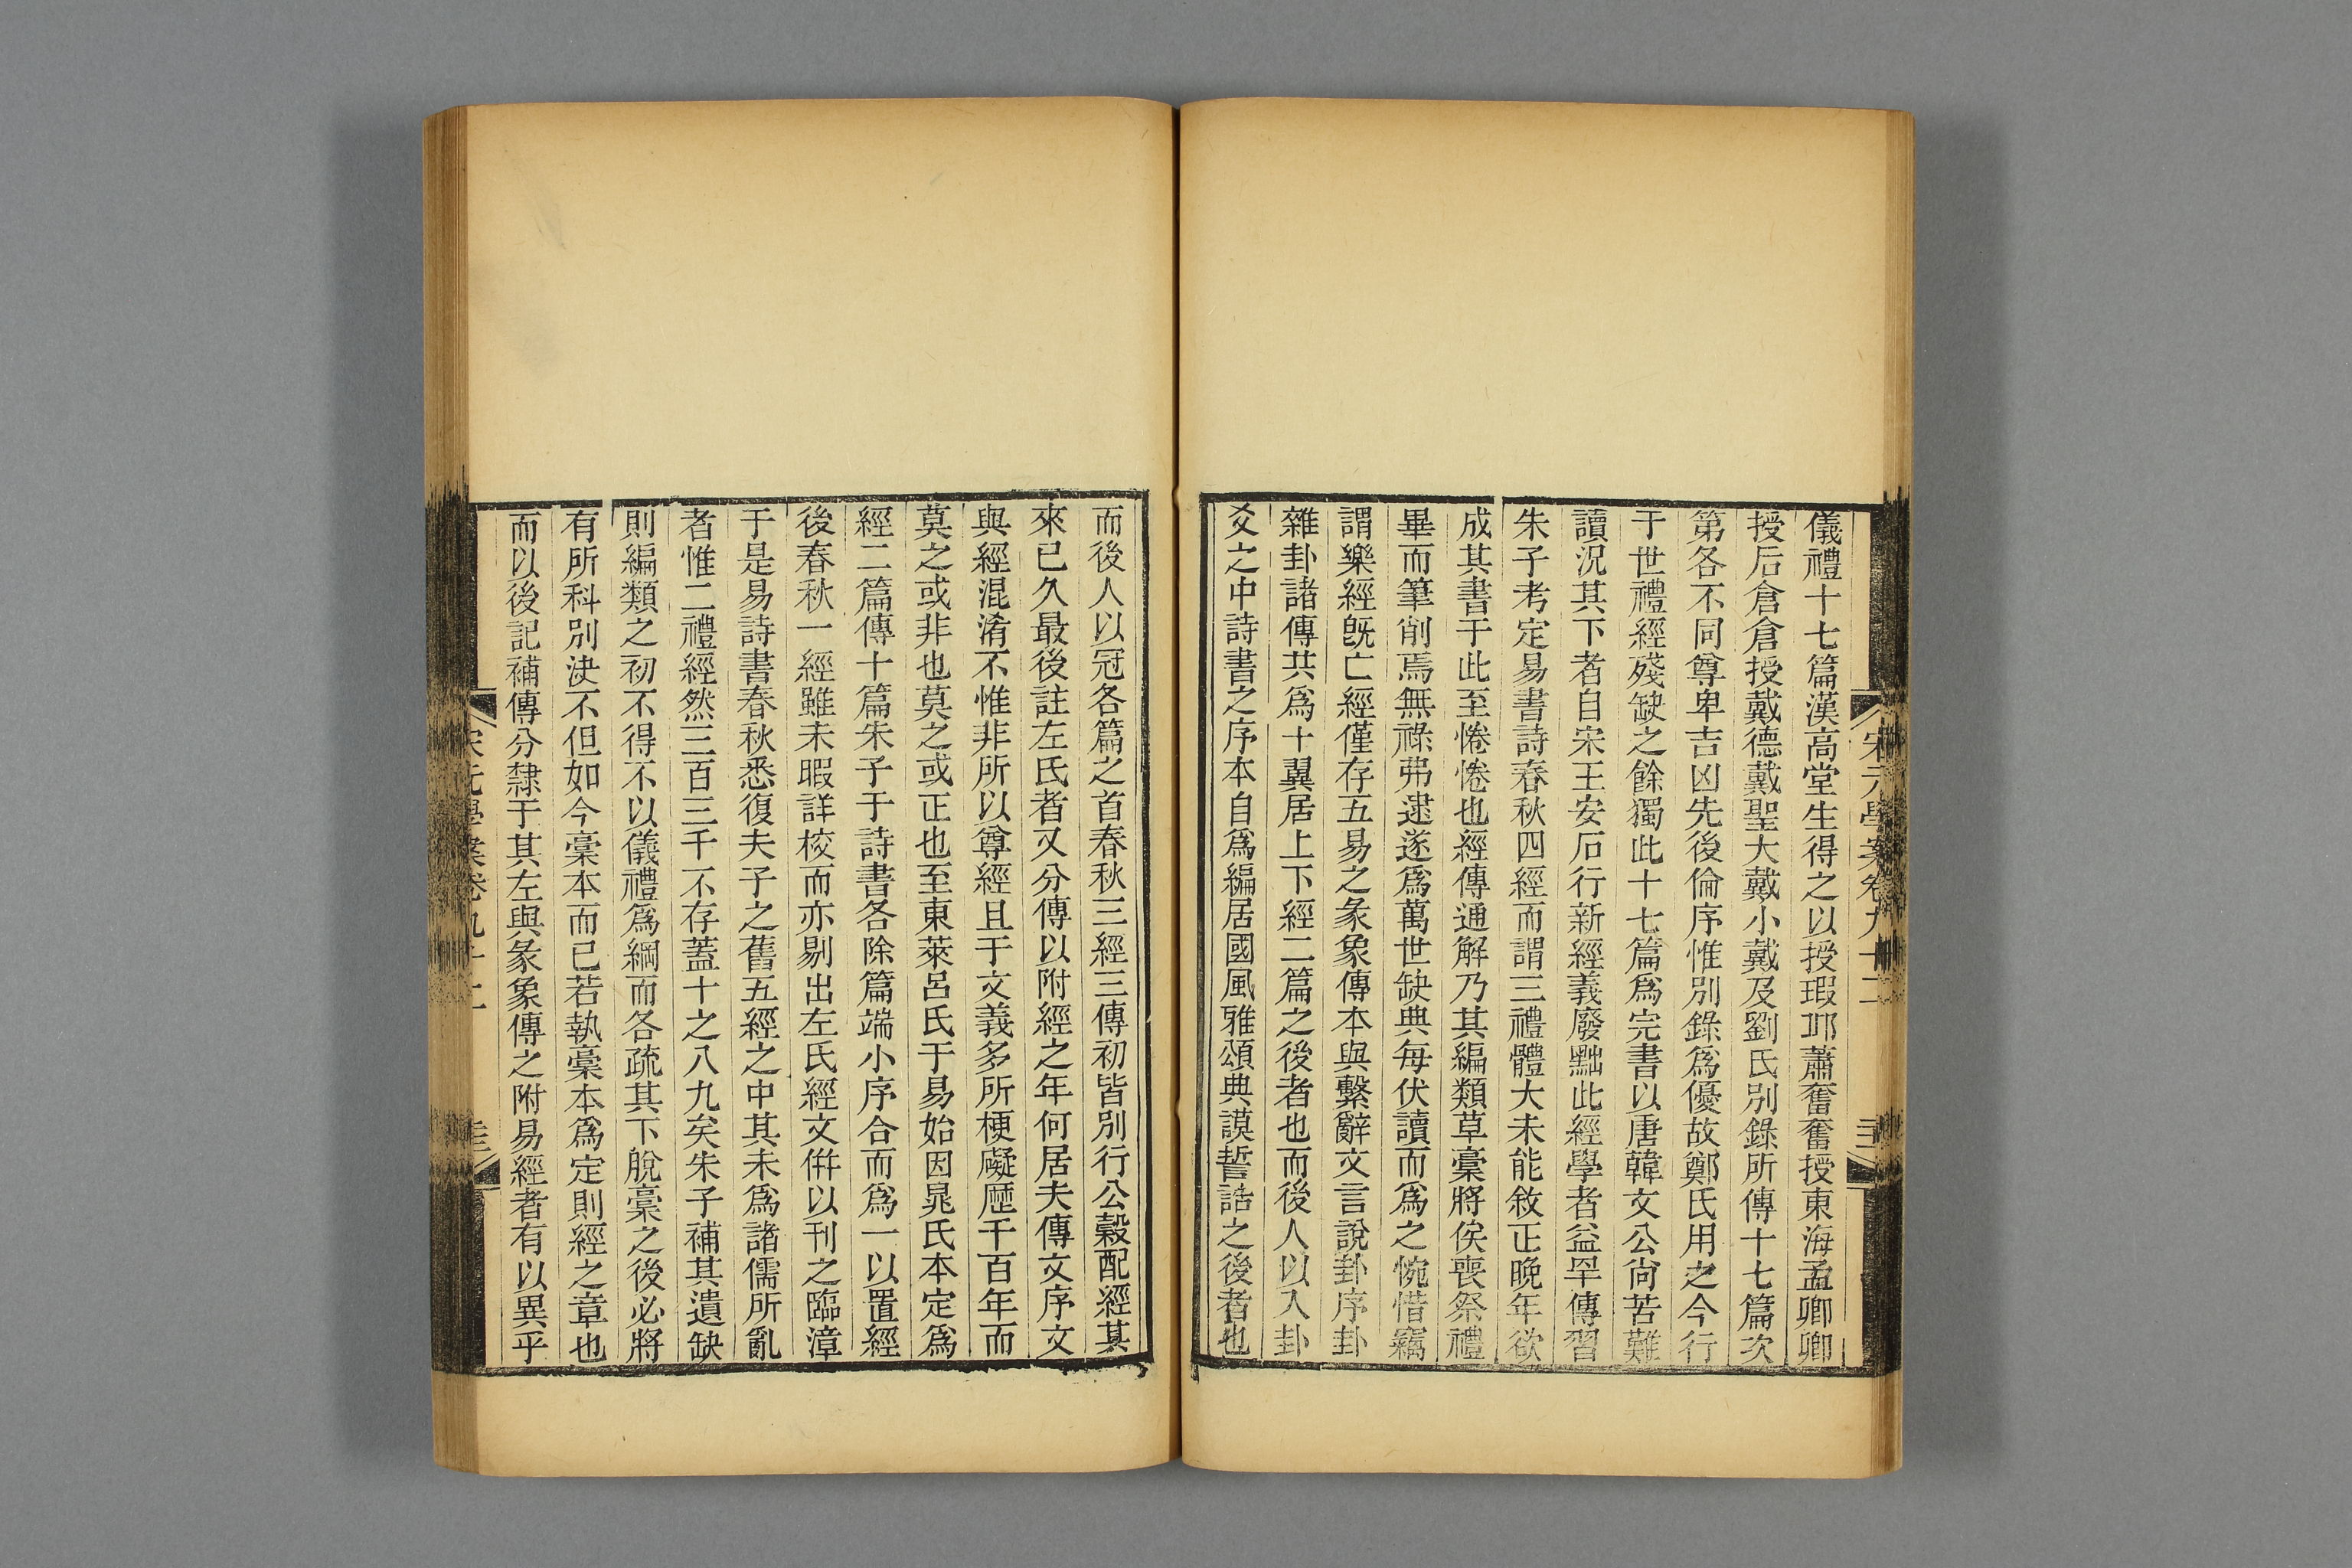 儀禮十七篇漢高堂生得之以授瑕邱蕭奮奮授東海孟卿卿
授后倉倉授戴德戴聖大戴小戴及劉氏別錄所傳十七篇次
第各不同尊卑吉凶先後倫序惟別錄爲優故鄭氏用之今行
于世禮經殘缺之餘獨此十七篇爲完書以唐韓文公尙苦難
讀況其下者自宋王安石行新經義廢黜此經學者益罕傳習
朱子考定易書詩春秋四經而謂三禮體大未能敘正晚年欲
成其書于此至惓惓也經傳通解乃其編類草稾將俟喪祭禮
畢而筆削焉無祿弗逮遂爲萬世缺典每伏讀而爲之惋惜竊
謂樂經旣亡經僅存五易之彖象傳本與繫辭文言說卦序卦
雜卦諸傳共爲十翼居上下經二篇之後者也而後人以入卦
爻之中詩書之序本自爲編居國風雅頌典謨誓誥之後者也
而後人以冠各篇之首春秋三經三傳初皆別行公穀配經其
來已久最後註左氏者又分傳以附經之年何居夫傳文序文
與經混淆不惟非所以尊經且于文義多所梗礙歷千百年而
莫之或非也莫之或正也至東萊呂氏于易始因晁氏本定爲
經二篇傳十篇朱子于詩書各除篇端小序合而爲一以置經
後春秋一經雖未暇詳校而亦剔出左氏經文倂以刊之臨漳
于是易詩書春秋悉復夫子之舊五經之中其未爲諸儒所亂
者惟二禮經然三百三千不存蓋十之八九矣朱子補其遺缺
則編類之初不得不以儀禮爲綱而各疏其下脫稾之後必將
有所科別決不但如今稾本而已若執稾本爲定則經之章也
而以後記補傳分隸于其左與彖象傳之附易經者有以異乎
宋元學案卷九十二